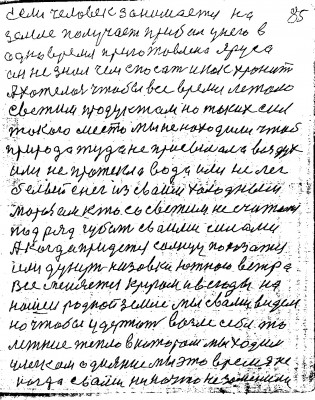 85
если человек занимается на
земле получает прибыл у него в
одно время приготовлена яруса
он не знал чем спосат и как хронит
Я хотел чтобы все время летоло
светим продуктом но таких сил
такого место мы не находили чтоб
природа туда не присылала воздух
или не протекла вода или не лег
белый снег из своим холодный
морозам кто со светим не считает
под ряд губит своими силами
А когда придется солнцу показат
или дунут низовки южного ветра
Все меняется кругом и всегды на
нашей родной земле мы с вами видем
но чтобы удержат возле себя то
летние тепло в котором мы ходили
человком одеяние мы это время
когда с вами ни на что не заменили